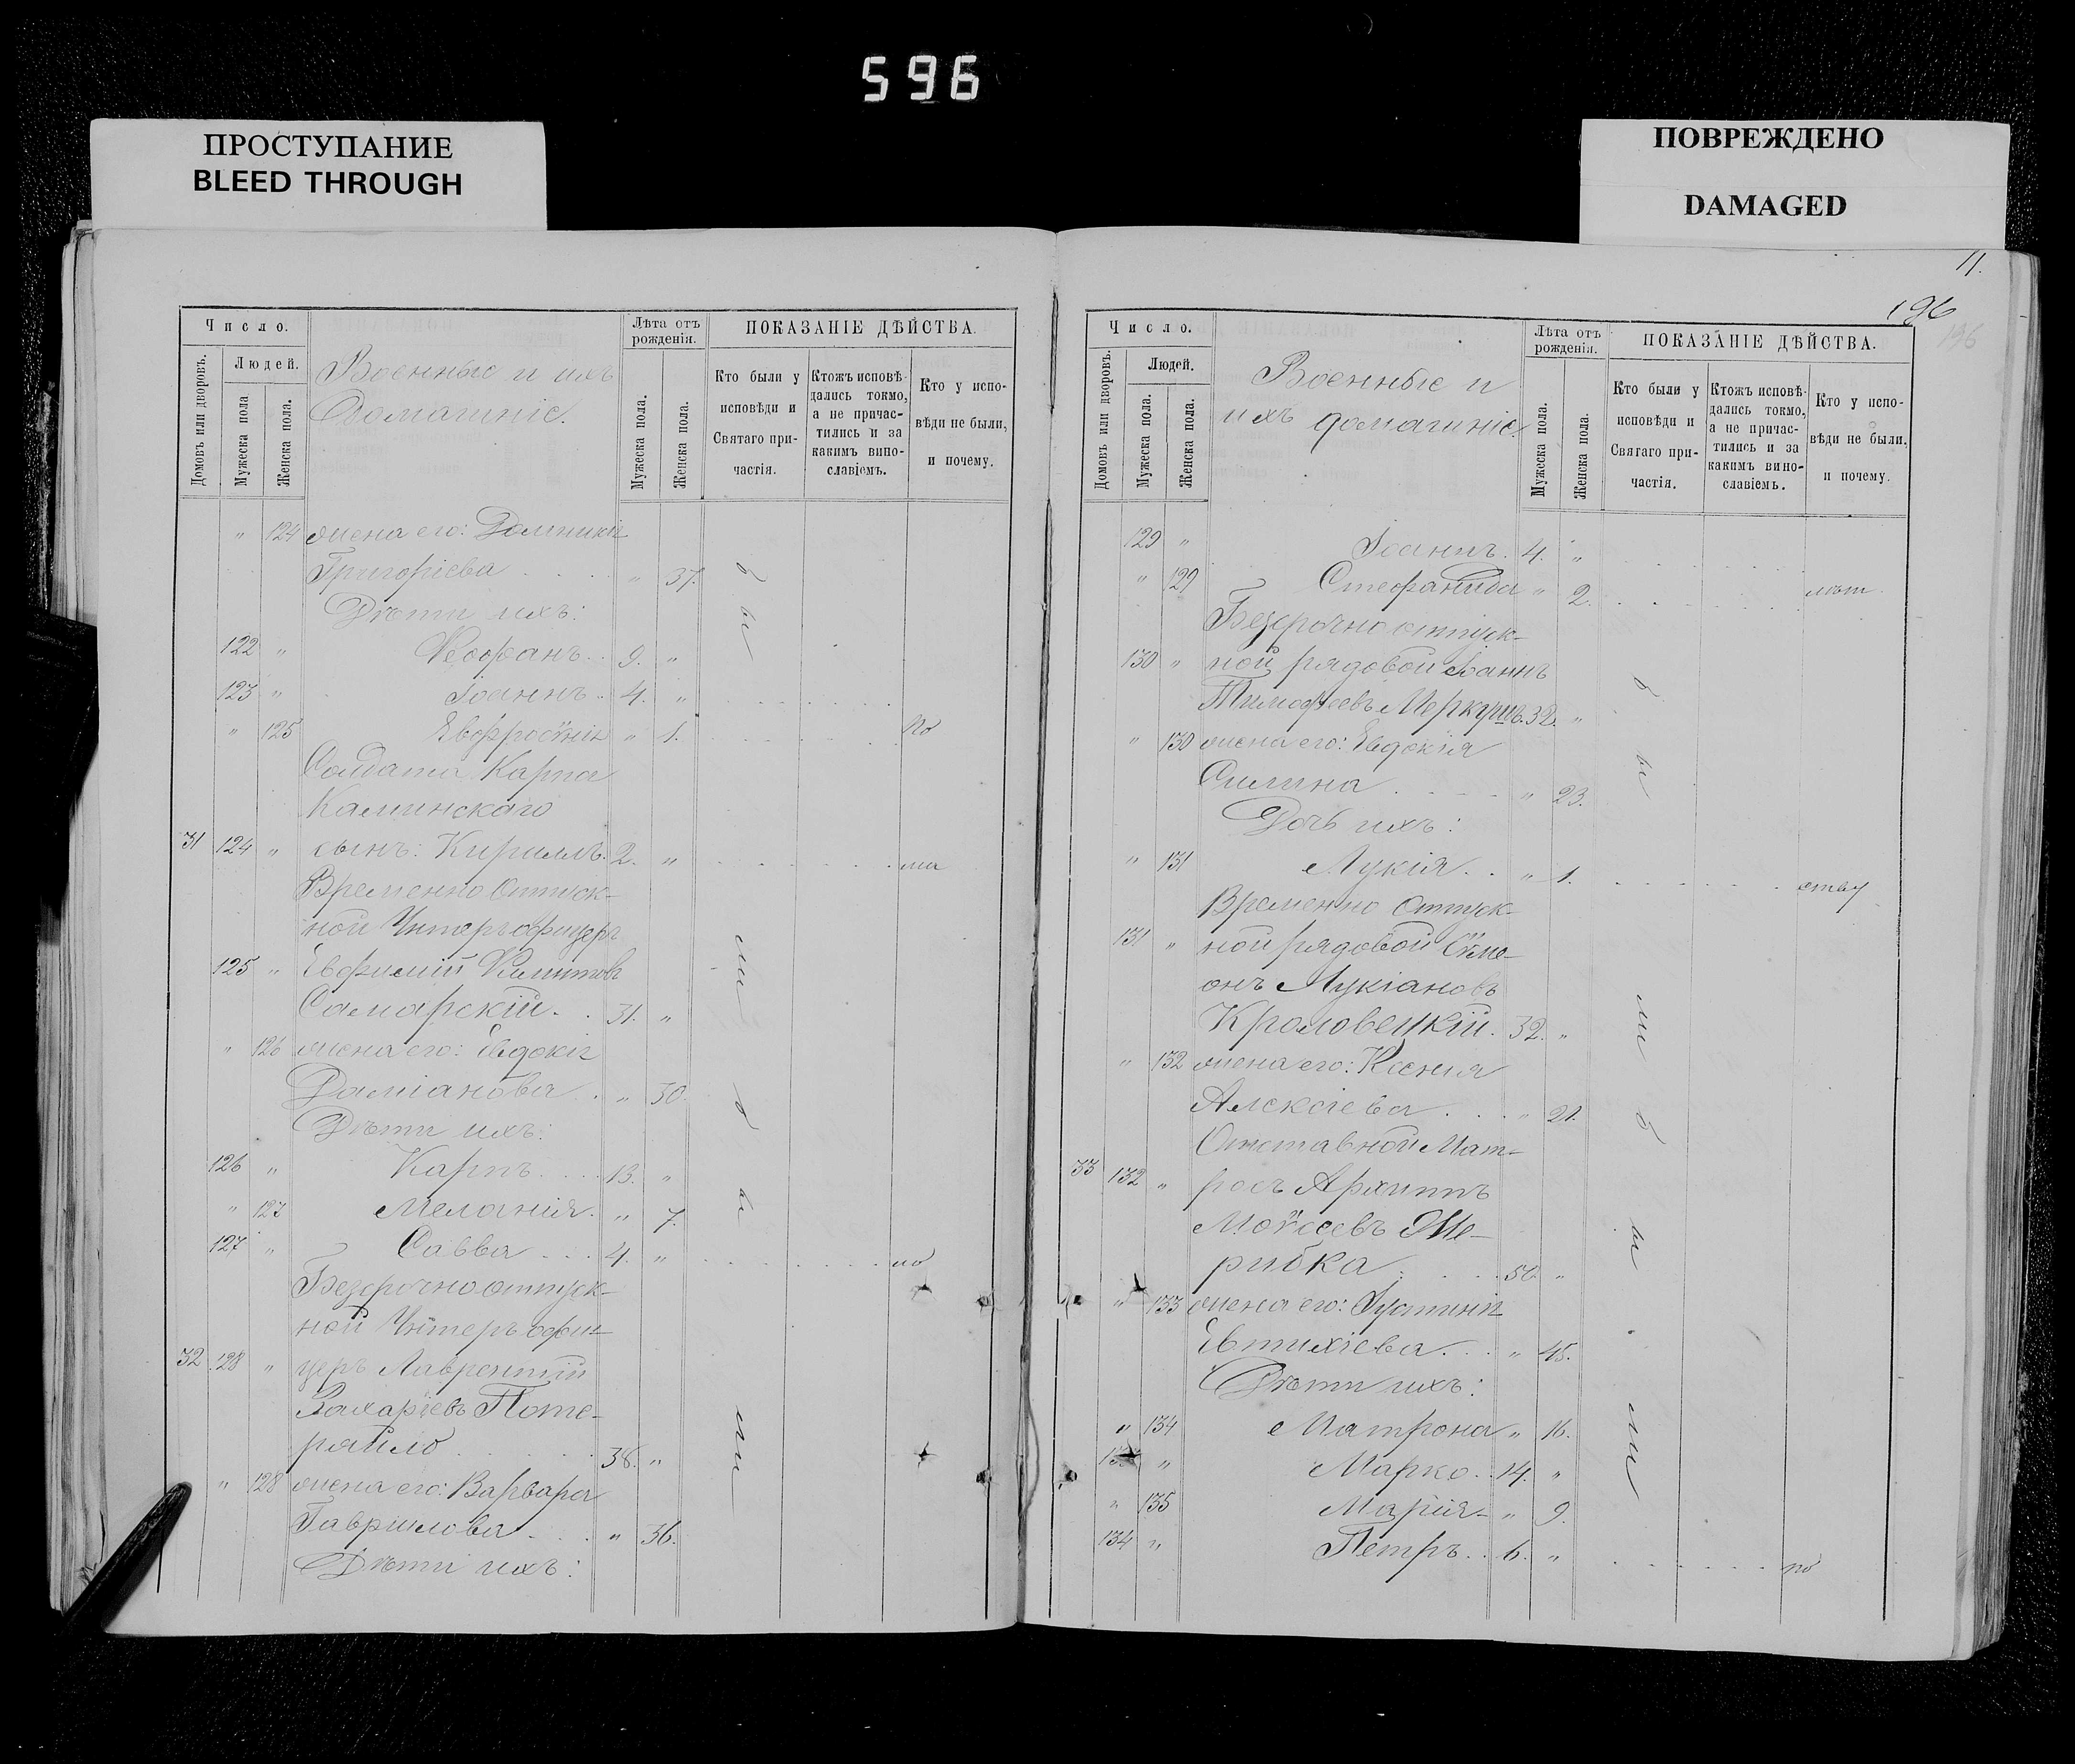 596
ПРОСТУПАНИЕ
BLEED THROUGH
ПОВРЕЖДЕНО
DAMAGED
Число.
Домовъ или дворовъ.
Людей.
Мужеска пола
Женска пола.
Военные и ихъ
Домашніе.
Лѣта отъ рожденія.
Мужеска пола.
Женска пола.
ПОКАЗАНІЕ ДѢЙСТВА.
Кто были у исповѣди и Святаго причастія.
Ктожъ исповѣдались токмо, а не причастились и за какимъ винославіемъ.
Кто у исповѣди не были, и почему.
" 124 жена его: Домникія
Григоріева . . . . " 37.
Дѣти ихъ:
122 " Ѳеофанъ . . 9. "
123 " Іоаннъ . 4. "
" 125 Евфросинія " 1. по
Солдата Карпа
Каминскаго
31 124 " сынъ: Кириллъ. 2. " ма
Временно Отпуск-
ной Унтерофицеръ
125 " Евфимій
Самарскій . . 31. "
" 126 жена его: Евдокія
Даміанова . " 30
Дѣти ихъ:
126 " Карпъ . . . 13. "
" 127 Меланія . " 7.
127 " Савва . . . 4. " ло
Безсрочноотпуск-
ной Унтеръ офи-
32 128 " церъ Лаврентій
Захаріевъ Поте-
ряйло . . . . . 38. "
" 128 жена его: Варвара
Гаврилова . . . " 36.
Дѣти ихъ:
бы
ли
бы
ли
11.
196
196
Число.
Домовъ или дворовъ.
Людей.
Мужеска пола.
Женска пола.
Военные и
ихъ домашніе.
Лѣта отъ рожденія.
Мужеска пола.
Женска пола.
ПОКАЗАНІЕ ДѢЙСТВА.
Кто были у исповѣди и Святаго причастія.
Ктожъ исповѣдались токмо, а не причастились и за какимъ винославіемъ.
Кто у исповѣди не были, и почему.
129 " Іоаннъ. 4. "
" 129 Стефанида " 2. лѣт
Безсрочноотпуск-
130 " ной рядовой Іоаннъ
Тимофеевъ Меркушъ. 32. "
" 130 жена его: Евдокія
Силина . . . . " 23.
Дочь ихъ:
" 131 Лукія . . " 1. ству
Временно Отпуск-
131 " ной рядовой Сѵме-
онъ Лукіановъ
Кроловецкій. 32. "
" 132 жена его: Ксенія
Алексіева . . . " 21.
Отставной Мат-
33 132 " росъ Архиппъ
Моисеевъ Же-
рибка . . . . 56. "
" 133 жена его: Іустинія
Евтихіева . . . " 45.
Дѣти ихъ:
" 134 Матрона " 16.
" Марко . . 14. "
" 135 Марія - " 9.
134 " Петръ . . 6. " по
бы
ли
бы
ли